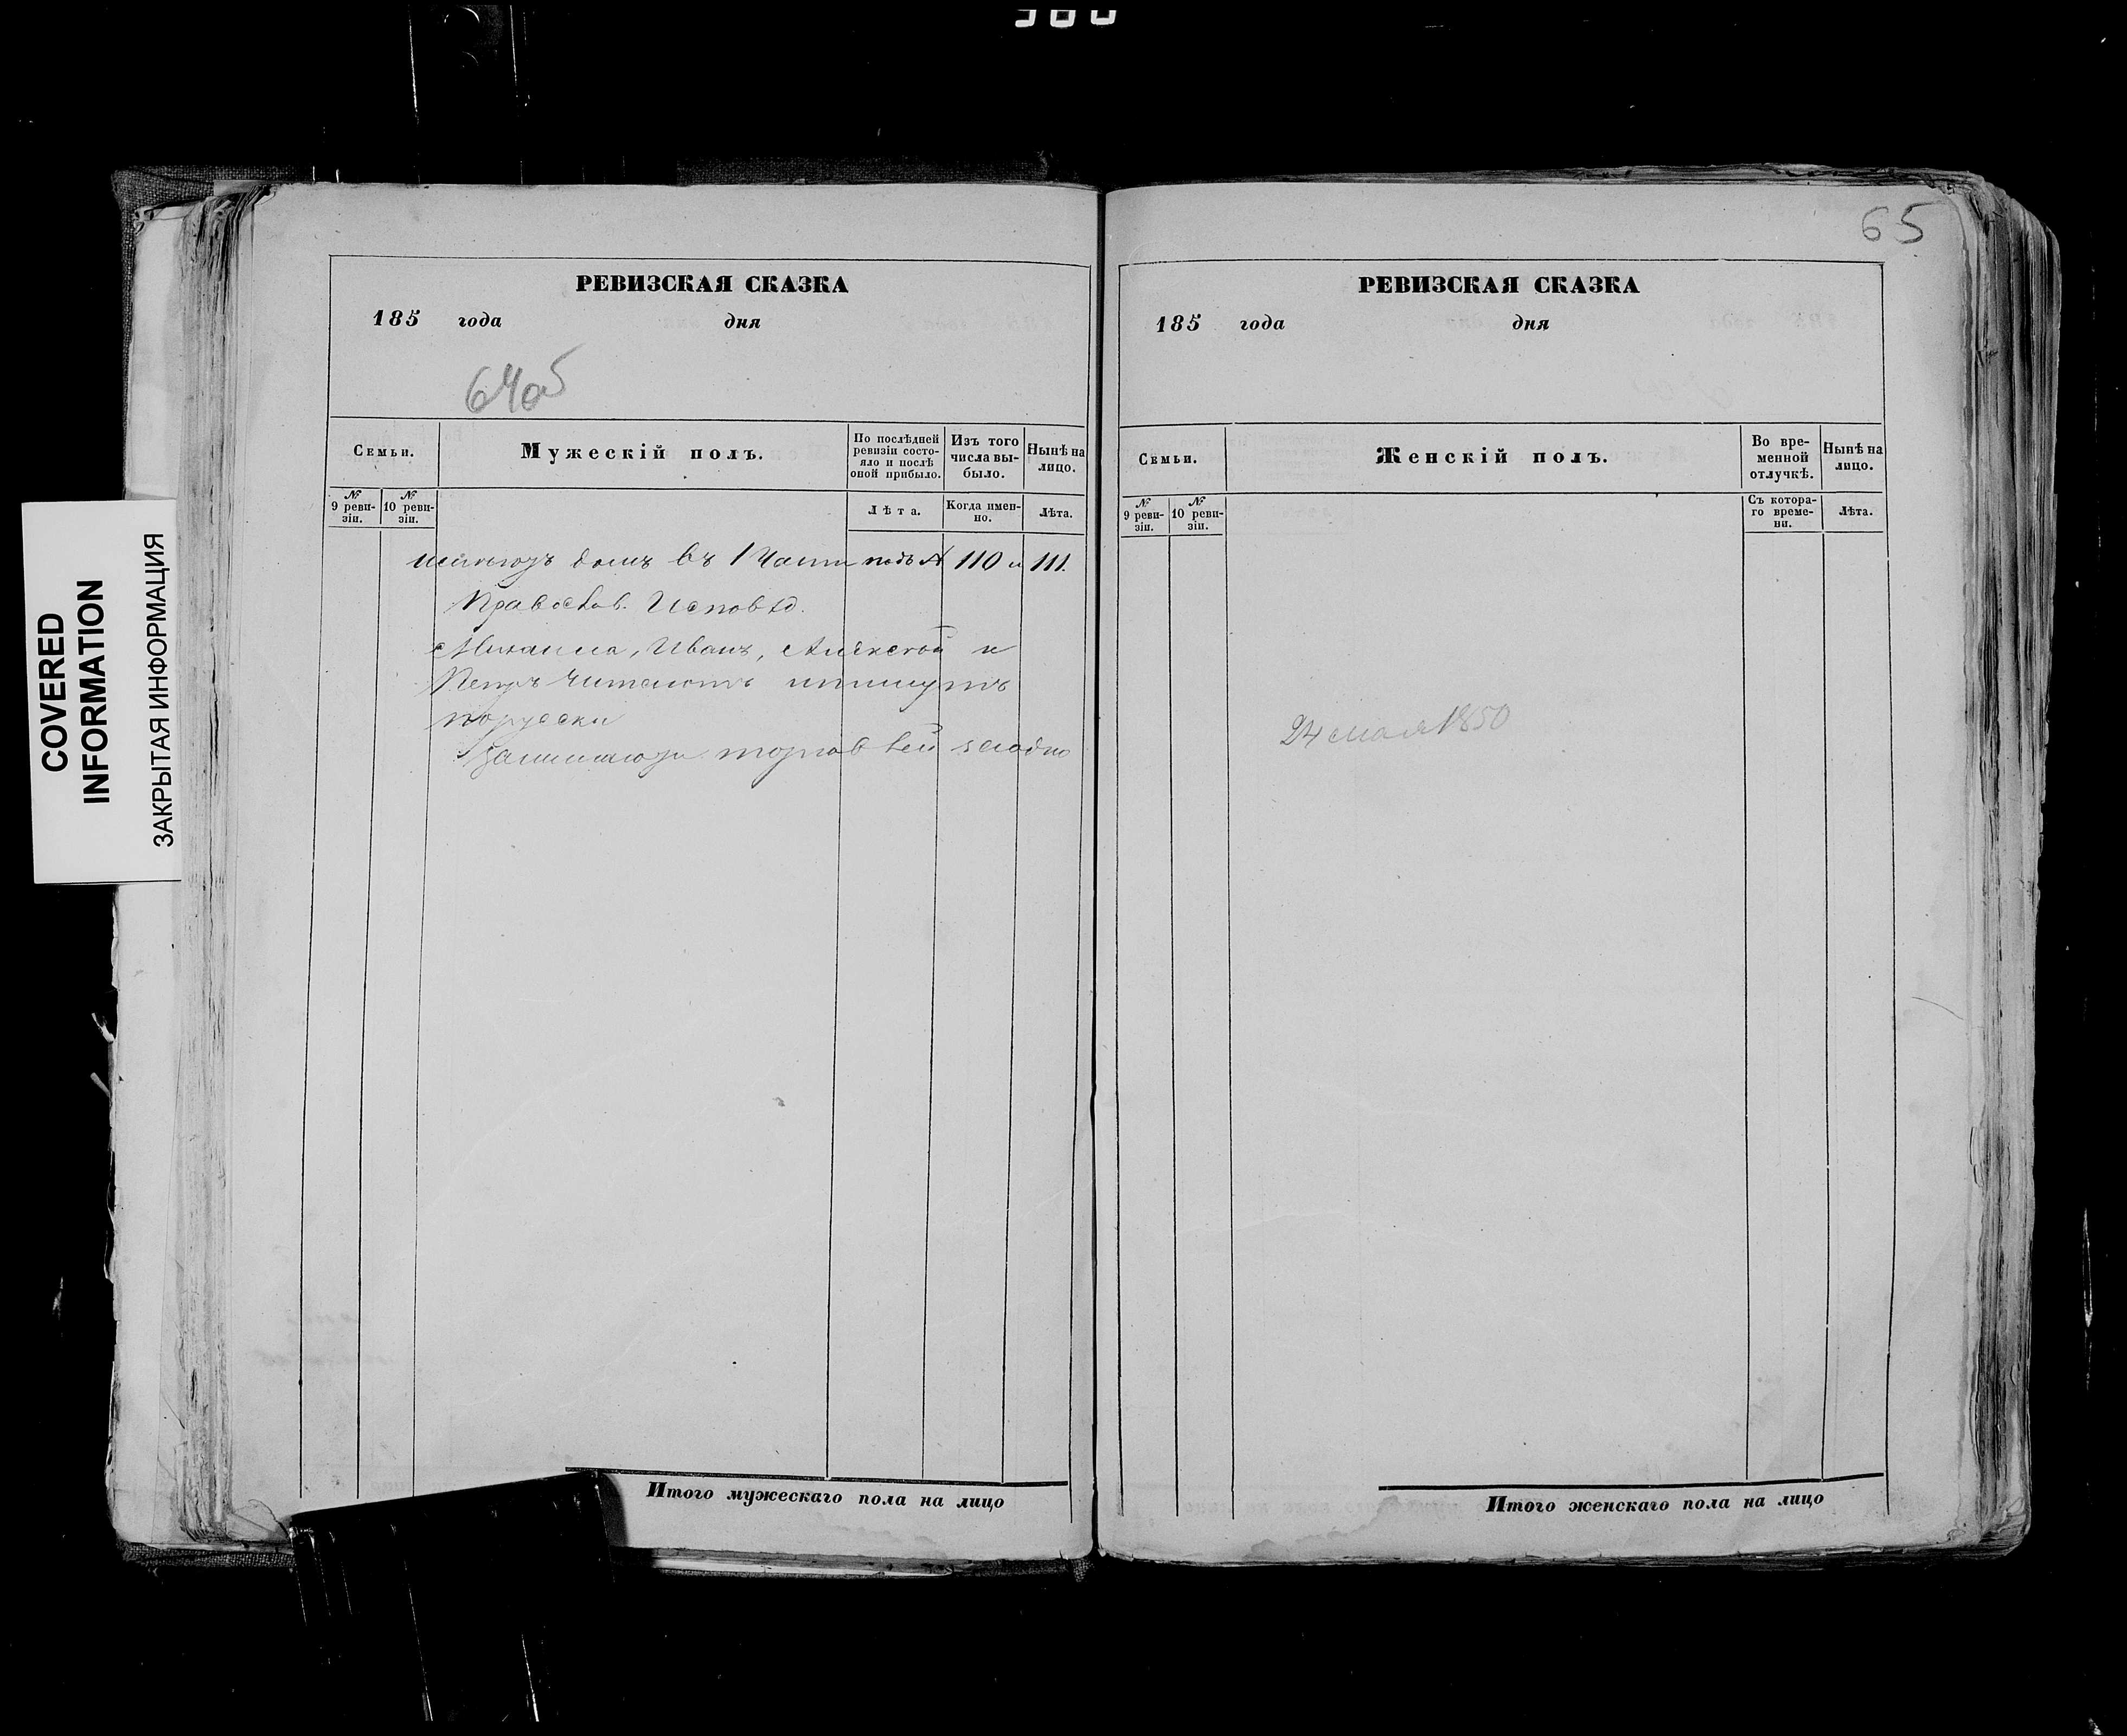 COVERED
INFORMATION
ЗАКРЫТАЯ ИНФОРМАЦИЯ
РЕВИЗСКАЯ СКАЗКА
185 года дня
64об
Семьи.
Мужескій полъ.
По послѣдней
ревизіи состо-
яло и послѣ
оной прибыло.
Изъ того
числа вы-
было.
Нынѣ на
лицо.
№
9 реви-
зіи.
№
10 реви-
зіи.
Лѣта.
Когда имен-
но.
Лѣта.
домъ въ 1 Части подъ № 110 и 111.
Православ. Исповѣд.
Михаила, Иванъ, Алексѣй и
Петръ читаютъ ипишутъ
порусски
торговлей
Итого мужескаго пола на лицо
65
РЕВИЗСКАЯ СКАЗКА
185 года дня
Семьи.
Женскій полъ.
Во вре-
менной
отлучкѣ.
Нынѣ на
лицо.
№
9 реви-
зіи.
№
10 реви-
зіи.
Съ котора-
го време-
ни.
Лѣта.
24 мая 1850
Итого женскаго пола на лицо